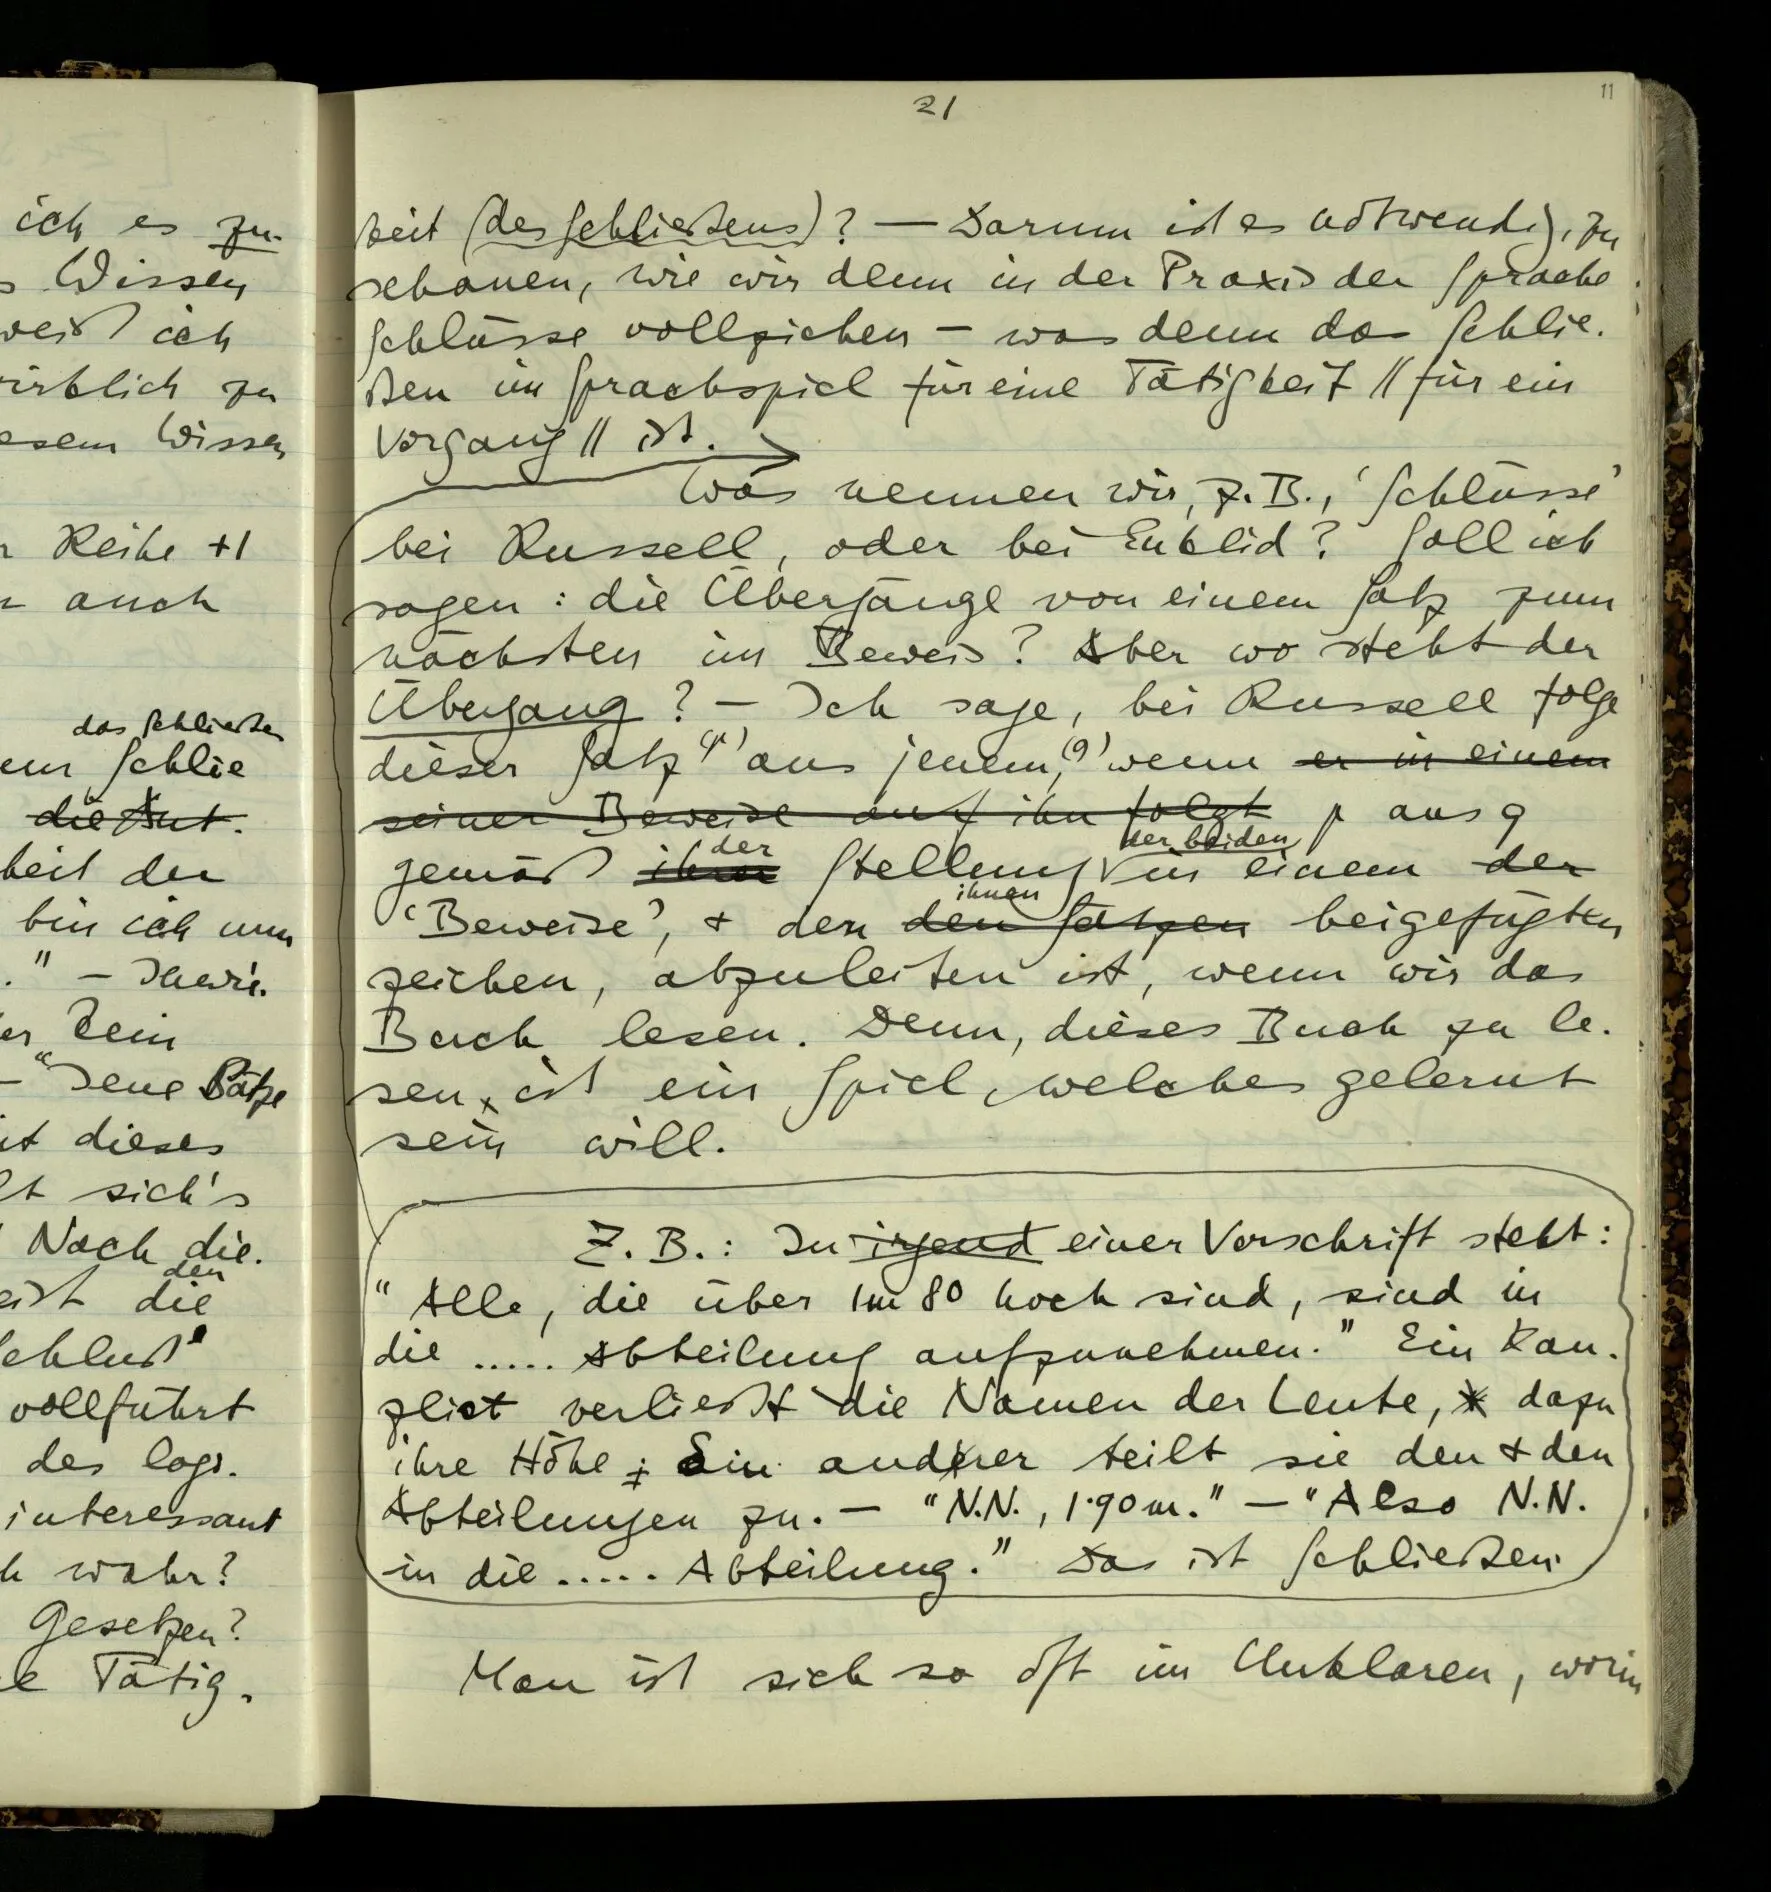 ich es zu-
Wissen
weiß ich
wirklich zu
esem Wissen
Reihe +1
auch
das Schließen
Schlie
die Art.
heit der
bin ich nun
." –
Dein
– "Jene Sätze
dieses
sich's
Noch die.
den
die
vollführt
des logi.
interessant
wahr?
Gesetzen?
Tätig.
21
11
keit (des Schließens)? — Darum ist es notwendig, zu
schauen, wie wir denn in der Praxis der Sprache
Schlüsse vollziehen – was denn das Schlie.
ßen im Sprachspiel für eine Tätigkeit // für ein
Vorgang // ist.
Was nennen wir, z.B., 'Schlüsse'
bei Russell, oder bei Euklid? Soll ich
sagen: die Übergänge von einem Satz zum
nächsten im Beweis? Aber wo steht der
Übergang? – Ich sage, bei Russell folge
dieser Satz 'p' aus jenem, 'q' wenn er in einem
seiner Beweise auf ihn folgt p aus q
der der beiden
gemäß ihrer Stellung in einem der
ihnen
'Beweise', & den den Sätzen beigefügten
Zeichen, abzuleiten ist, wenn wir das
Buch lesen. Denn, dieses Buch zu le.
sen, ist ein Spiel, welches gelernt
sein will.
Z.B.: In irgend einer Vorschrift steht:
"Alle, die über 1m 80 hoch sind, sind in
die ..... Abteilung aufzunehmen." Ein Kan.
zlist verließt die Namen der Leute, dazu
ihre Höhe; Ein anderer teilt sie den & den
Abteilungen zu. — "N.N., 1·90 m." — "Also N.N.
in die ..... Abteilung." Das ist Schließen.
Man ist sich so oft im Unklaren, worin